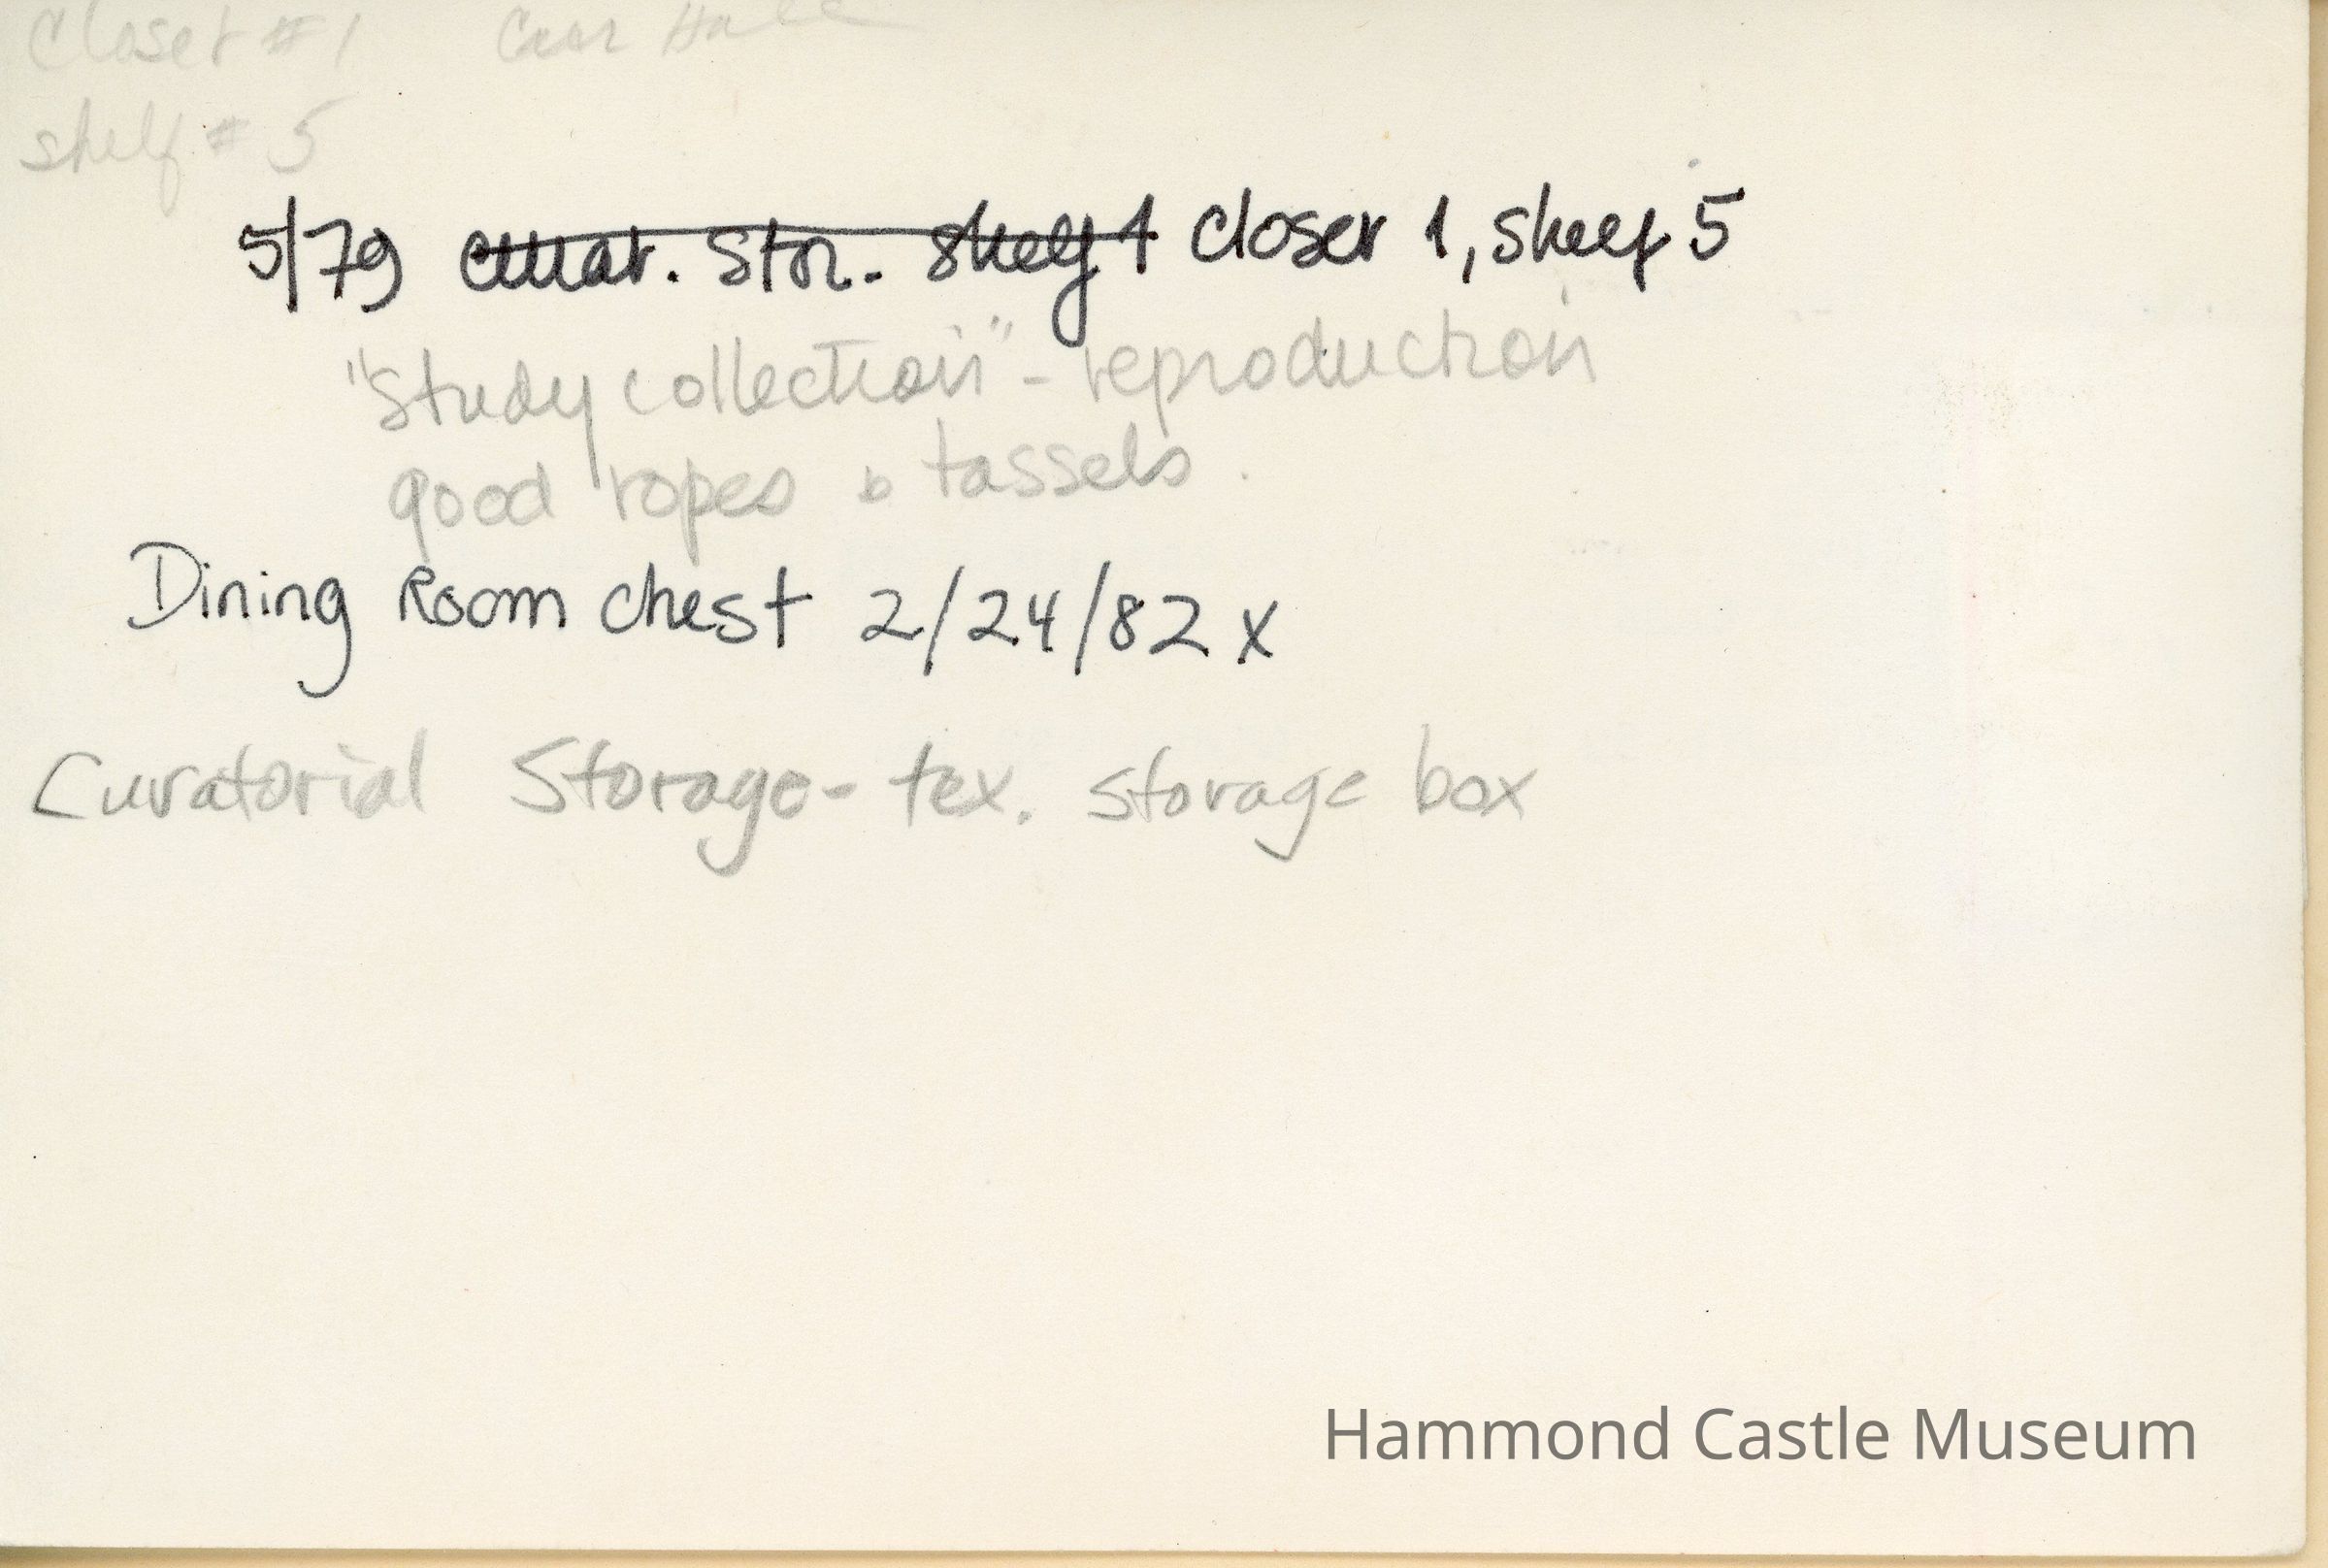 Closet #1 Hall
shelf # 5
5/79 Stor. Shelf 4 Closet 1, Shelf 5
"Study collection" - reproduction
good ropes & tassels.
Dining Room Chest 2/24/82 x
Curatorial Storage - tex. storage box
Hammond Castle Museum